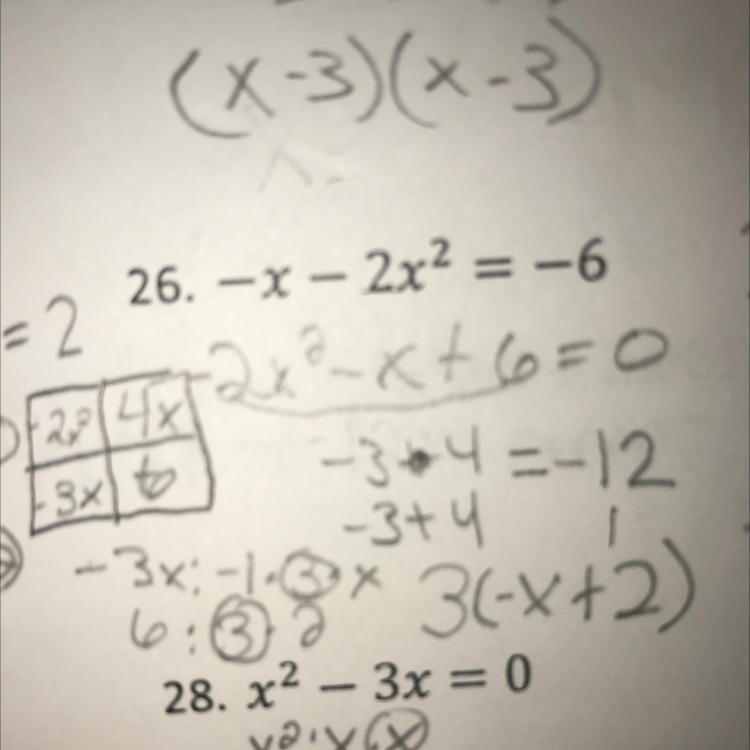 (x-3)(x-3)
26. −x − 2x² = −6
= 2
-2x²-x+6=0
-2x² 4x
-3x 6
-3•4 =-12
-3+4 1
-3x: -1·3·x
3(-x+2)
6:3·2
28. x² − 3x = 0